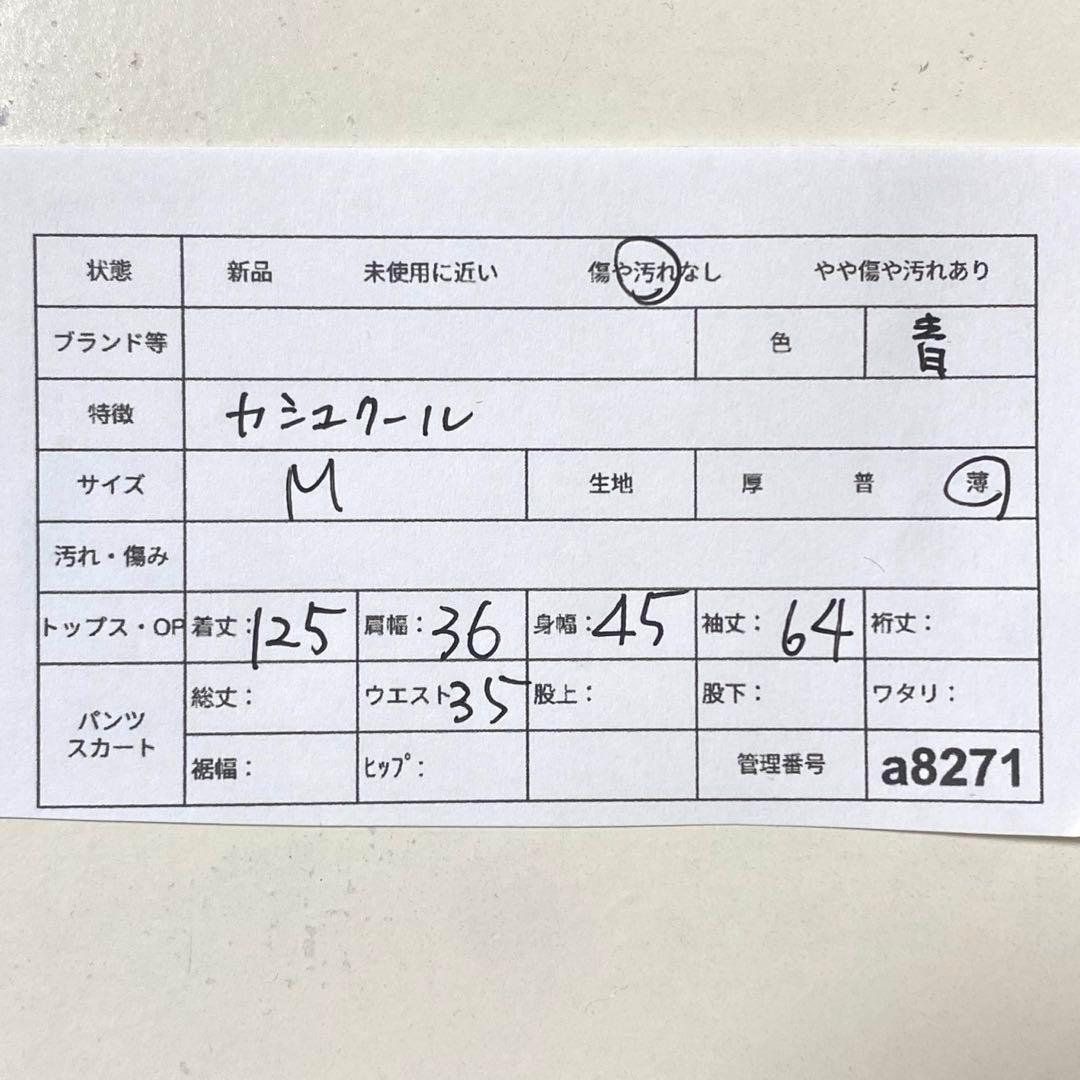 状態 新品 未使用に近い 傷や汚れなし やや傷や汚れあり
ブランド等 色 青
特徴 カシュクール
サイズ M 生地 厚 普 薄
汚れ・傷み
トップス・OP 着丈：125 肩幅：36 身幅：45 袖丈：64 裄丈：
パンツ スカート 総丈： ウエスト35 股上： 股下： ワタリ：
裾幅： ﾋｯﾌﾟ： 管理番号 a8271